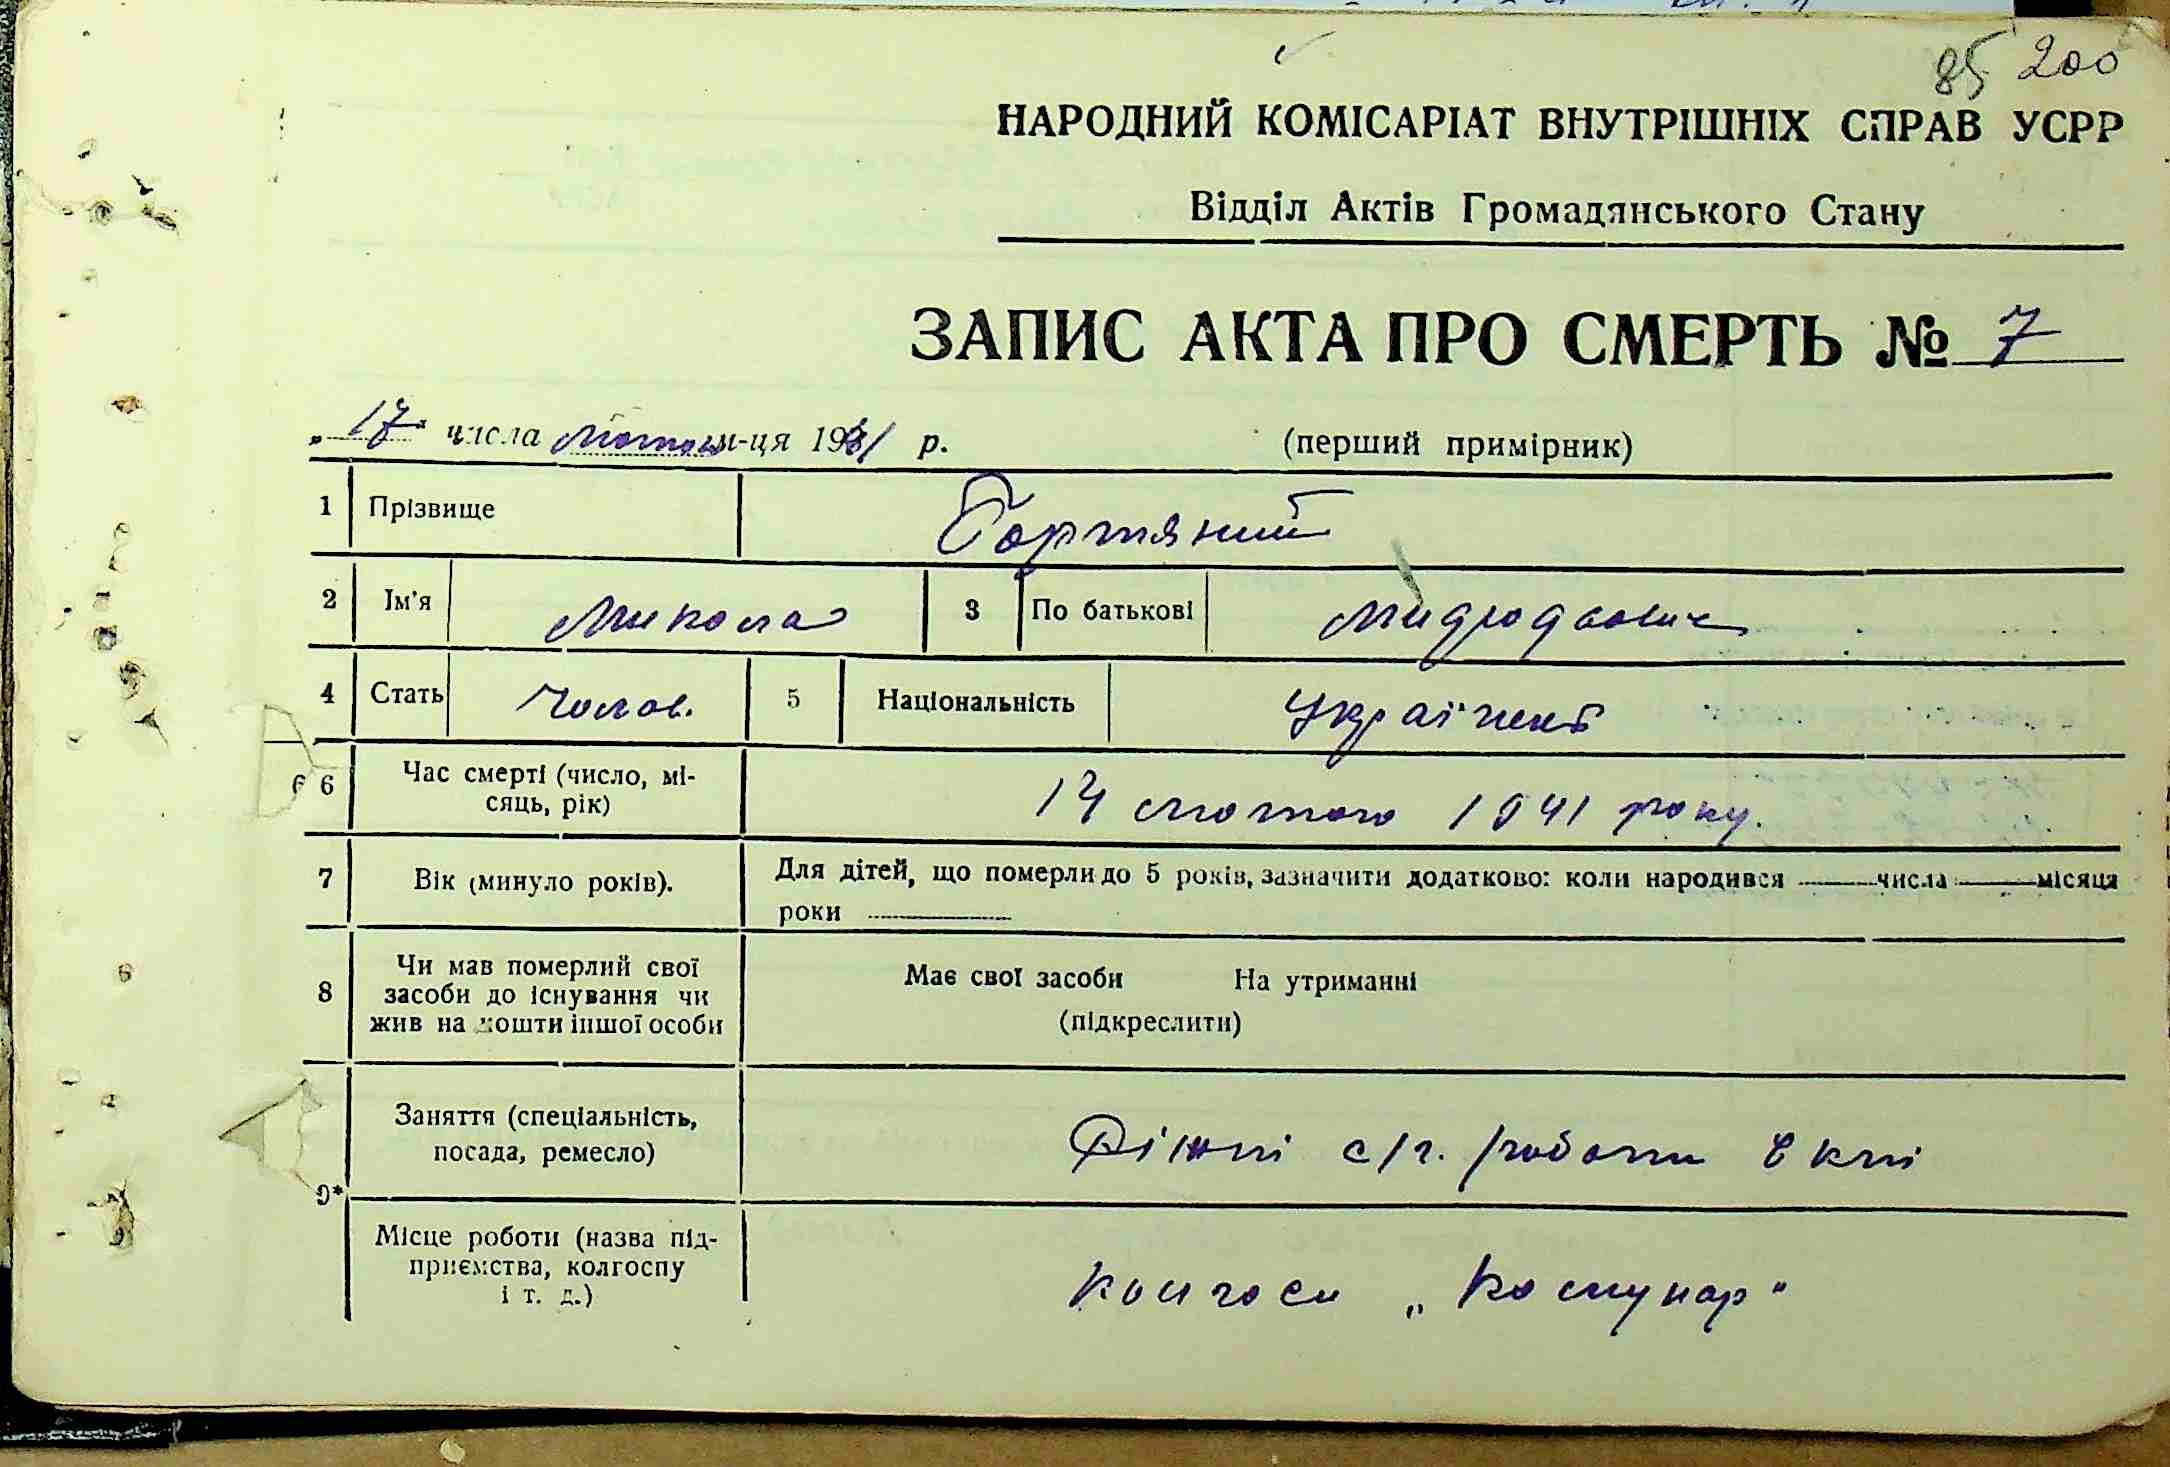 85 200
НАРОДНИЙ КОМІСАРІАТ ВНУТРІШНІХ СПРАВ УСРР
Відділ Актів Громадянського Стану
ЗАПИС АКТА ПРО СМЕРТЬ № 7
„17" числа лютого м-ця 1941 р. (перший примірник)
1 Прізвище
2 Ім'я Микола 3 По батькові
4 Стать Чолов. 5 Національність Українець
6 6 Час смерті (число, мі-
сяць, рік) 14 лютого 1941 року.
7 Вік (минуло років). Для дітей, що померли до 5 років, зазначити додатково: коли народився числа місяця
роки
8 Чи мав померлий свої
засоби до існування чи
жив на кошти іншої особи
Має свої засоби На утриманні
(підкреслити)
9*
Заняття (спеціальність,
посада, ремесло) Ріжні с/г. роботи в клі
Місце роботи (назва під-
приємства, колгоспу
і т. д.) Колгосп „Комунар"